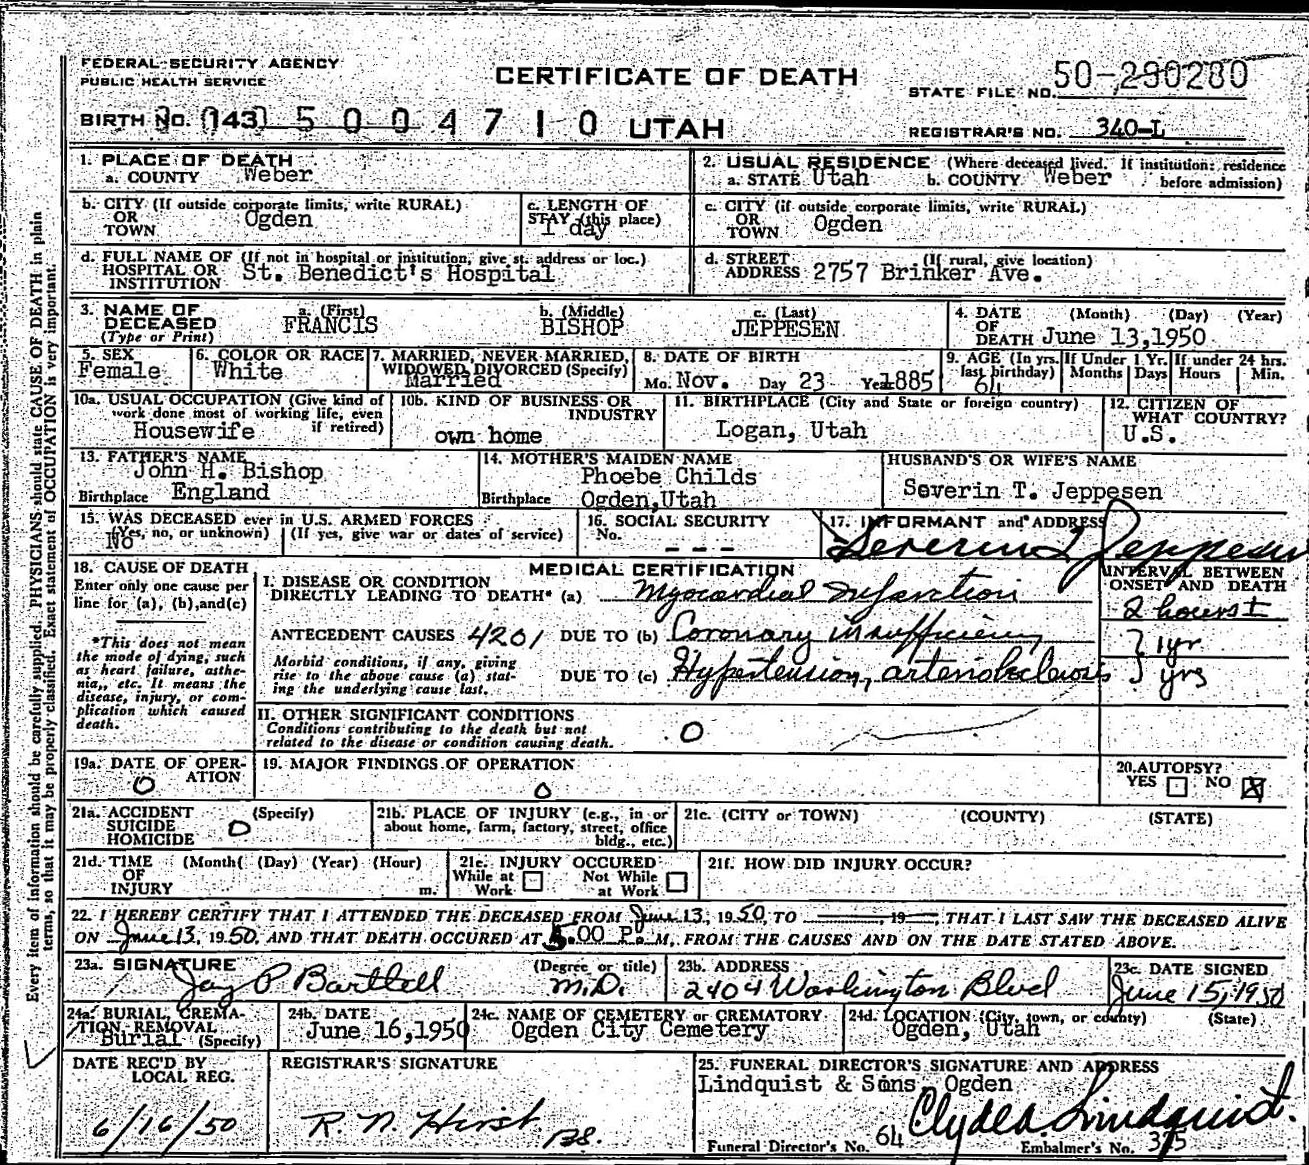 FEDERAL SECURITY AGENCY
PUBLIC HEALTH SERVICE
CERTIFICATE OF DEATH
STATE FILE NO. 50-290280
BIRTH NO. (143) 5 0 0 4 7 1 0 UTAH
REGISTRAR'S NO. 340-L
1. PLACE OF DEATH
a. COUNTY Weber
2. USUAL RESIDENCE (Where deceased lived. If institution: residence before admission)
a. STATE Utah b. COUNTY Weber
b. CITY (If outside corporate limits, write RURAL)
OR TOWN Ogden
c. LENGTH OF STAY (this place)
1 day
c. CITY (if outside corporate limits, write RURAL)
OR TOWN Ogden
d. FULL NAME OF (If not in hospital or institution, give st. address or loc.)
HOSPITAL OR INSTITUTION St. Benedict's Hospital
d. STREET ADDRESS (If rural, give location)
2757 Brinker Ave.
3. NAME OF DECEASED (Type or Print)
a. (First) b. (Middle) c. (Last)
FRANCIS BISHOP JEPPESEN
4. DATE OF DEATH (Month) (Day) (Year)
June 13,1950
5. SEX
Female
6. COLOR OR RACE
White
7. MARRIED, NEVER MARRIED, WIDOWED, DIVORCED (Specify)
Married
8. DATE OF BIRTH
Mo. Nov. Day 23 Year 1885
9. AGE (In yrs. last birthday)
64
If Under 1 Yr. Months Days
If under 24 hrs. Hours Min.
10a. USUAL OCCUPATION (Give kind of work done most of working life, even if retired)
Housewife
10b. KIND OF BUSINESS OR INDUSTRY
own home
11. BIRTHPLACE (City and State or foreign country)
Logan, Utah
12. CITIZEN OF WHAT COUNTRY?
U.S.
13. FATHER'S NAME
John H. Bishop
Birthplace England
14. MOTHER'S MAIDEN NAME
Phoebe Childs
Birthplace Ogden,Utah
HUSBAND'S OR WIFE'S NAME
Severin T. Jeppesen
15. WAS DECEASED ever in U.S. ARMED FORCES
(Yes, no, or unknown) (If yes, give war or dates of service)
No
16. SOCIAL SECURITY
No. - - -
17. INFORMANT and ADDRESS
Severin T Jeppesen
18. CAUSE OF DEATH
Enter only one cause per line for (a), (b),and(c)
*This does not mean the mode of dying, such as heart failure, asthenia,, etc. It means the disease, injury, or complication which caused death.
MEDICAL CERTIFICATION
I. DISEASE OR CONDITION
DIRECTLY LEADING TO DEATH* (a) Myocardial Infarction
INTERVAL BETWEEN ONSET AND DEATH
2 hours ±
ANTECEDENT CAUSES 4201 DUE TO (b) Coronary insufficiency } 1yr
Morbid conditions, if any, giving rise to the above cause (a) stating the underlying cause last.
DUE TO (c) Hypertension, arteriosclerosis } yrs
II. OTHER SIGNIFICANT CONDITIONS
Conditions contributing to the death but not related to the disease or condition causing death.
0
19a. DATE OF OPERATION
0
19. MAJOR FINDINGS OF OPERATION
0
20. AUTOPSY?
YES NO X
21a. ACCIDENT SUICIDE HOMICIDE (Specify)
0
21b. PLACE OF INJURY (e.g., in or about home, farm, factory, street, office bldg., etc.)
21c. (CITY or TOWN) (COUNTY) (STATE)
21d. TIME OF INJURY (Month( (Day) (Year) (Hour) m.
21e. INJURY OCCURED
While at Work Not While at Work
21f. HOW DID INJURY OCCUR?
22. I HEREBY CERTIFY THAT I ATTENDED THE DECEASED FROM June 13, 1950 TO 19 , THAT I LAST SAW THE DECEASED ALIVE
ON June 13, 1950, AND THAT DEATH OCCURED AT 5:00 P. M, FROM THE CAUSES AND ON THE DATE STATED ABOVE.
23a. SIGNATURE (Degree or title)
Jay P Bartlett M.D.
23b. ADDRESS
2404 Washington Blvd
23c. DATE SIGNED
June 15, 1950
24a. BURIAL, CREMATION, REMOVAL (Specify)
Burial
24b. DATE
June 16,1950
24c. NAME OF CEMETERY or CREMATORY
Ogden City Cemetery
24d. LOCATION (City, town, or county) (State)
Ogden, Utah
DATE REC'D BY LOCAL REG.
6/16/50
REGISTRAR'S SIGNATURE
R. N. Hirst
25. FUNERAL DIRECTOR'S SIGNATURE AND ADDRESS
Lindquist & Sons, Ogden
Clyde Lindquist.
Funeral Director's No. 64 Embalmer's No. 375
Every item of information should be carefully supplied. PHYSICIANS should state CAUSE OF DEATH in plain
terms, so that it may be properly classified. Exact statement of OCCUPATION is very important.